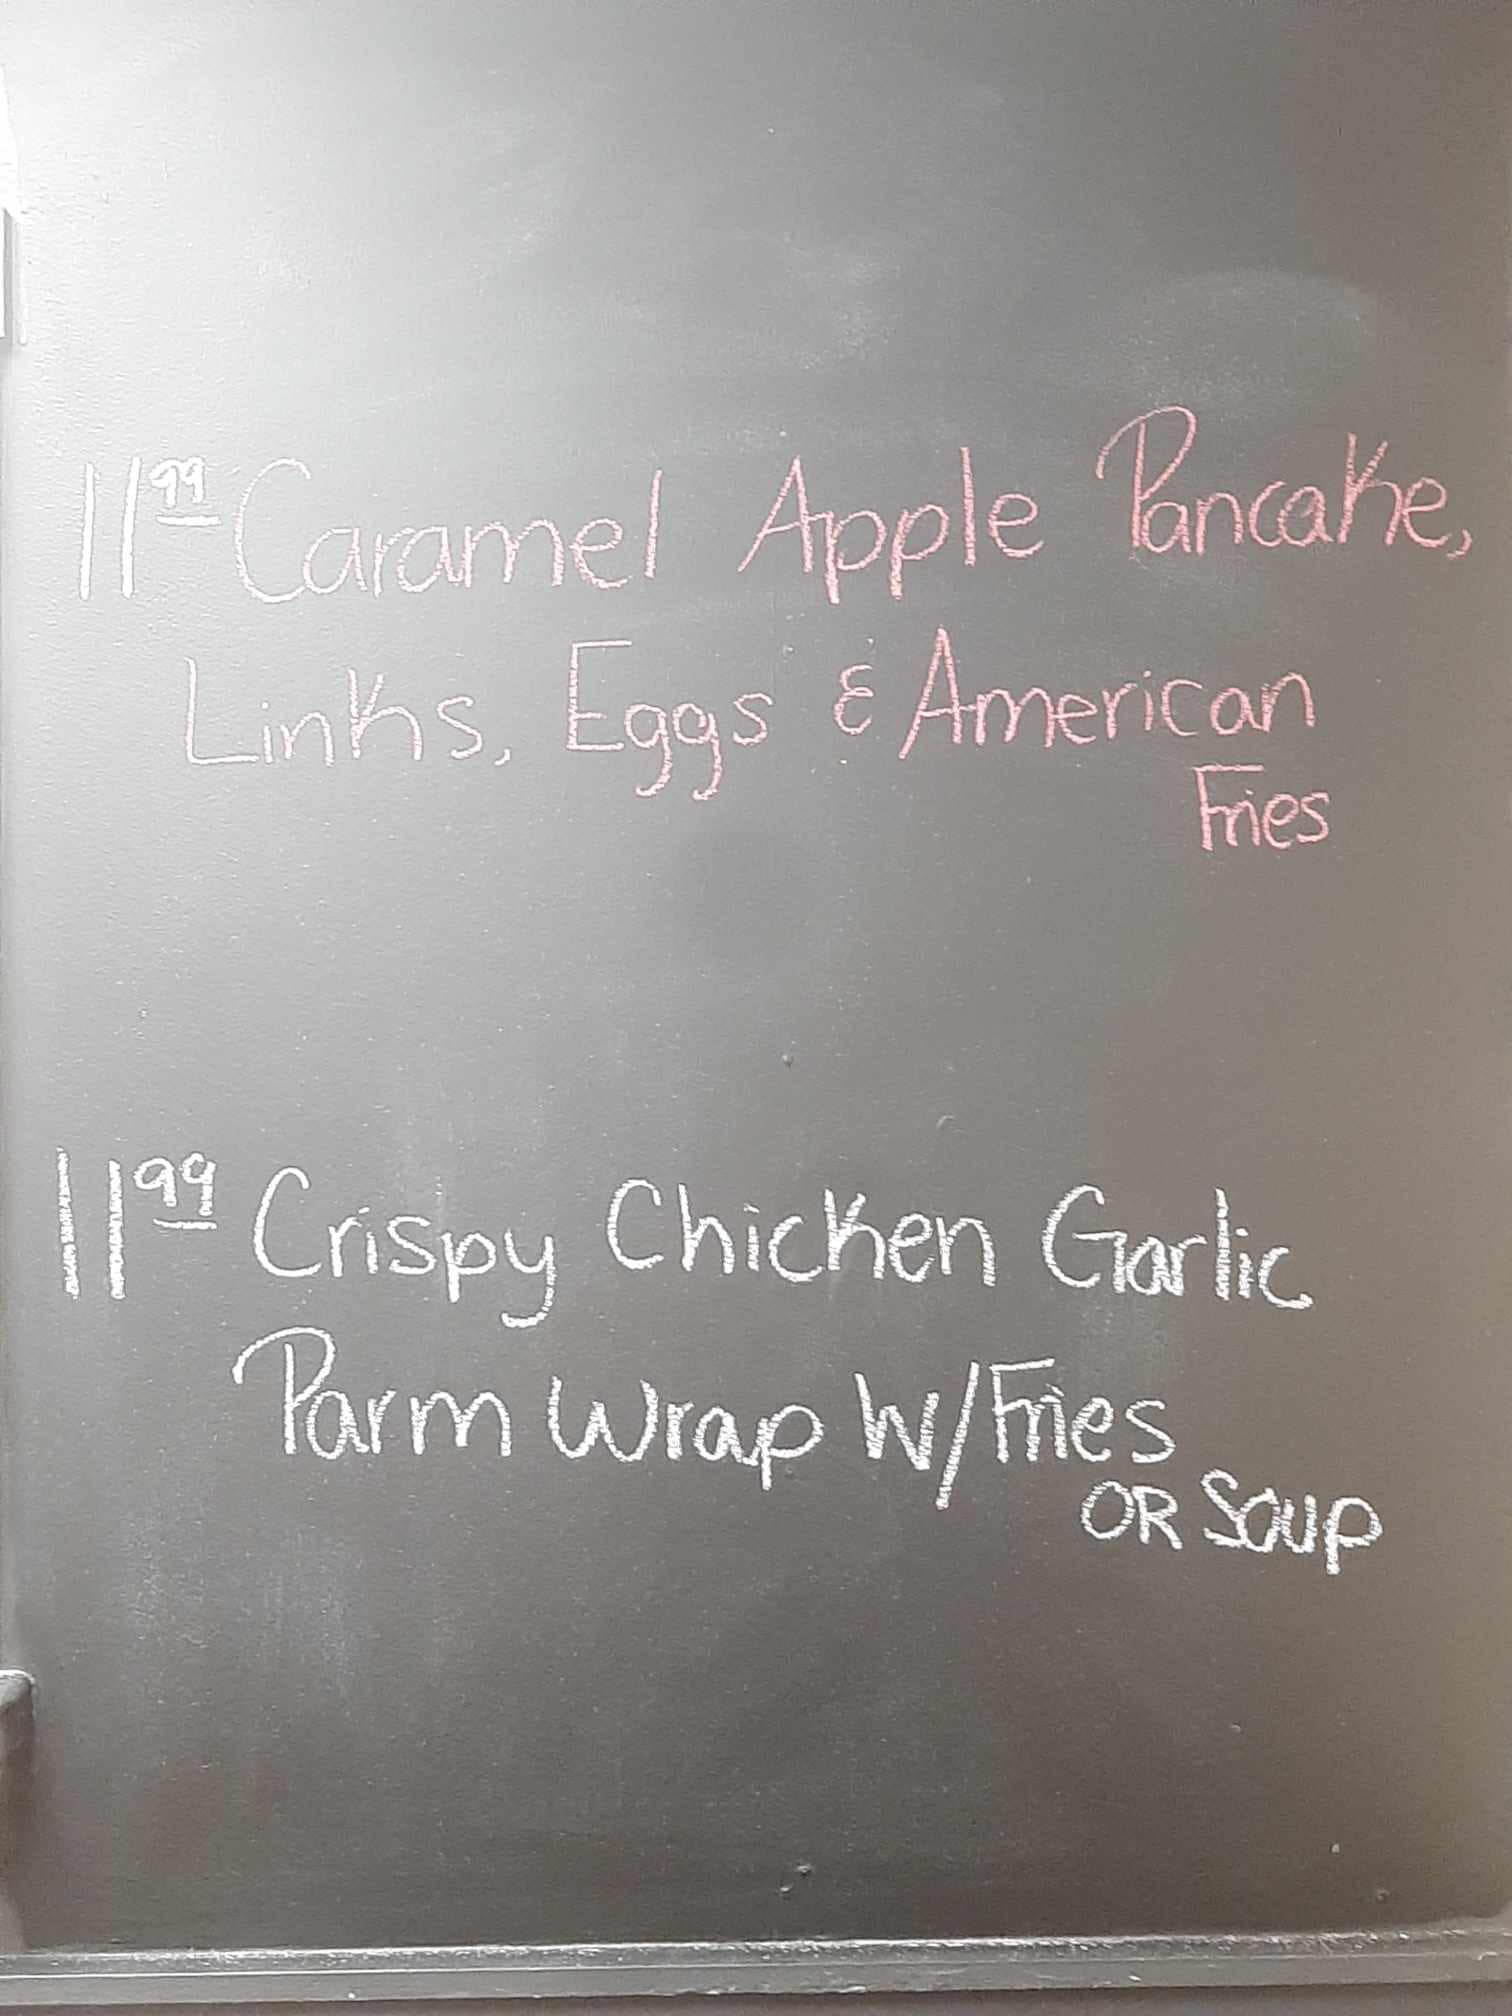 11 99 Caramel Apple Pancake,
Links, Eggs & American
Fries
11 99 Crispy Chicken Garlic
Parm Wrap W/Fries
OR Soup